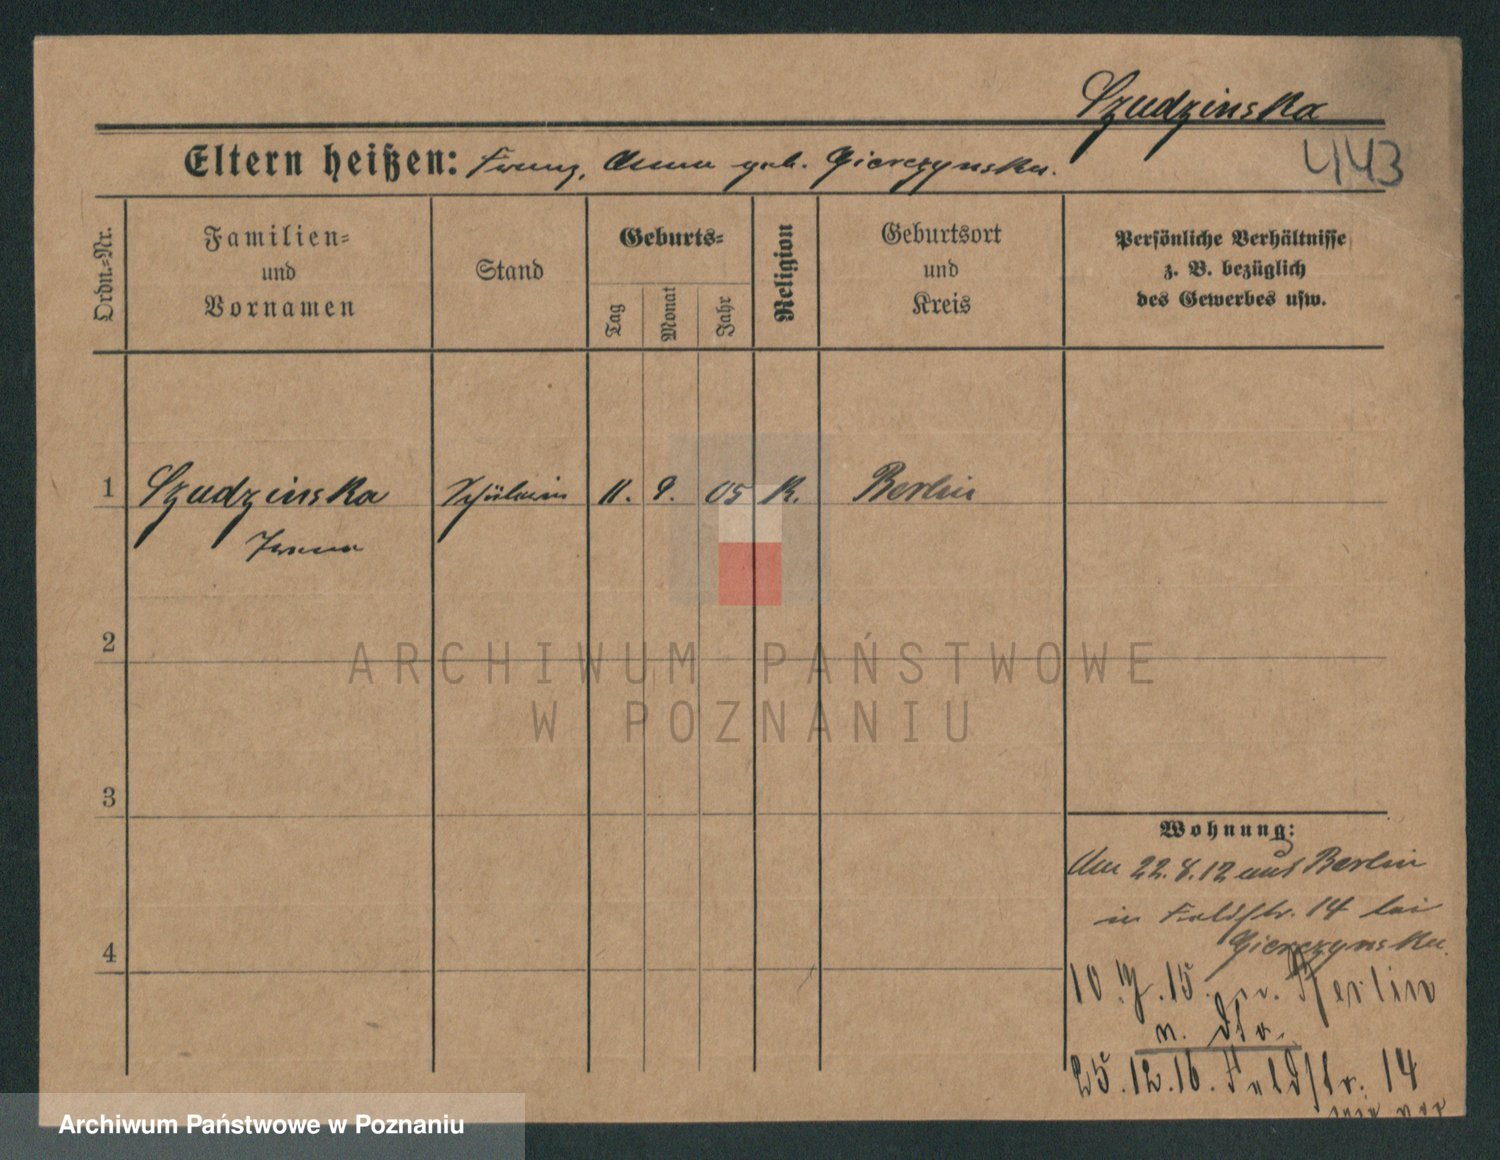 Szudzinska
443
Eltern heißen: Franz, Anna geb. Gierczynska.
Ordn.-Nr.
Familien-
und
Vornamen
Stand
Geburts-
Tag
Monat
Jahr
Religion
Geburtsort
und
Kreis
Persönliche Verhältnisse
z. B. bezüglich
des Gewerbes usw.
1 Szudzinska Schülerin 11. 9. 05 K. Berlin
Irena
2
3
4
ARCHIWUM PAŃSTWOWE
W POZNANIU
Wohnung:
Am 22.8.12 aus Berlin
in Feldstr. 14 bei
Gierczynska.
10. 15. Berlin
n.
25.12.16. Feldstr. 14
Archiwum Państwowe w Poznaniu